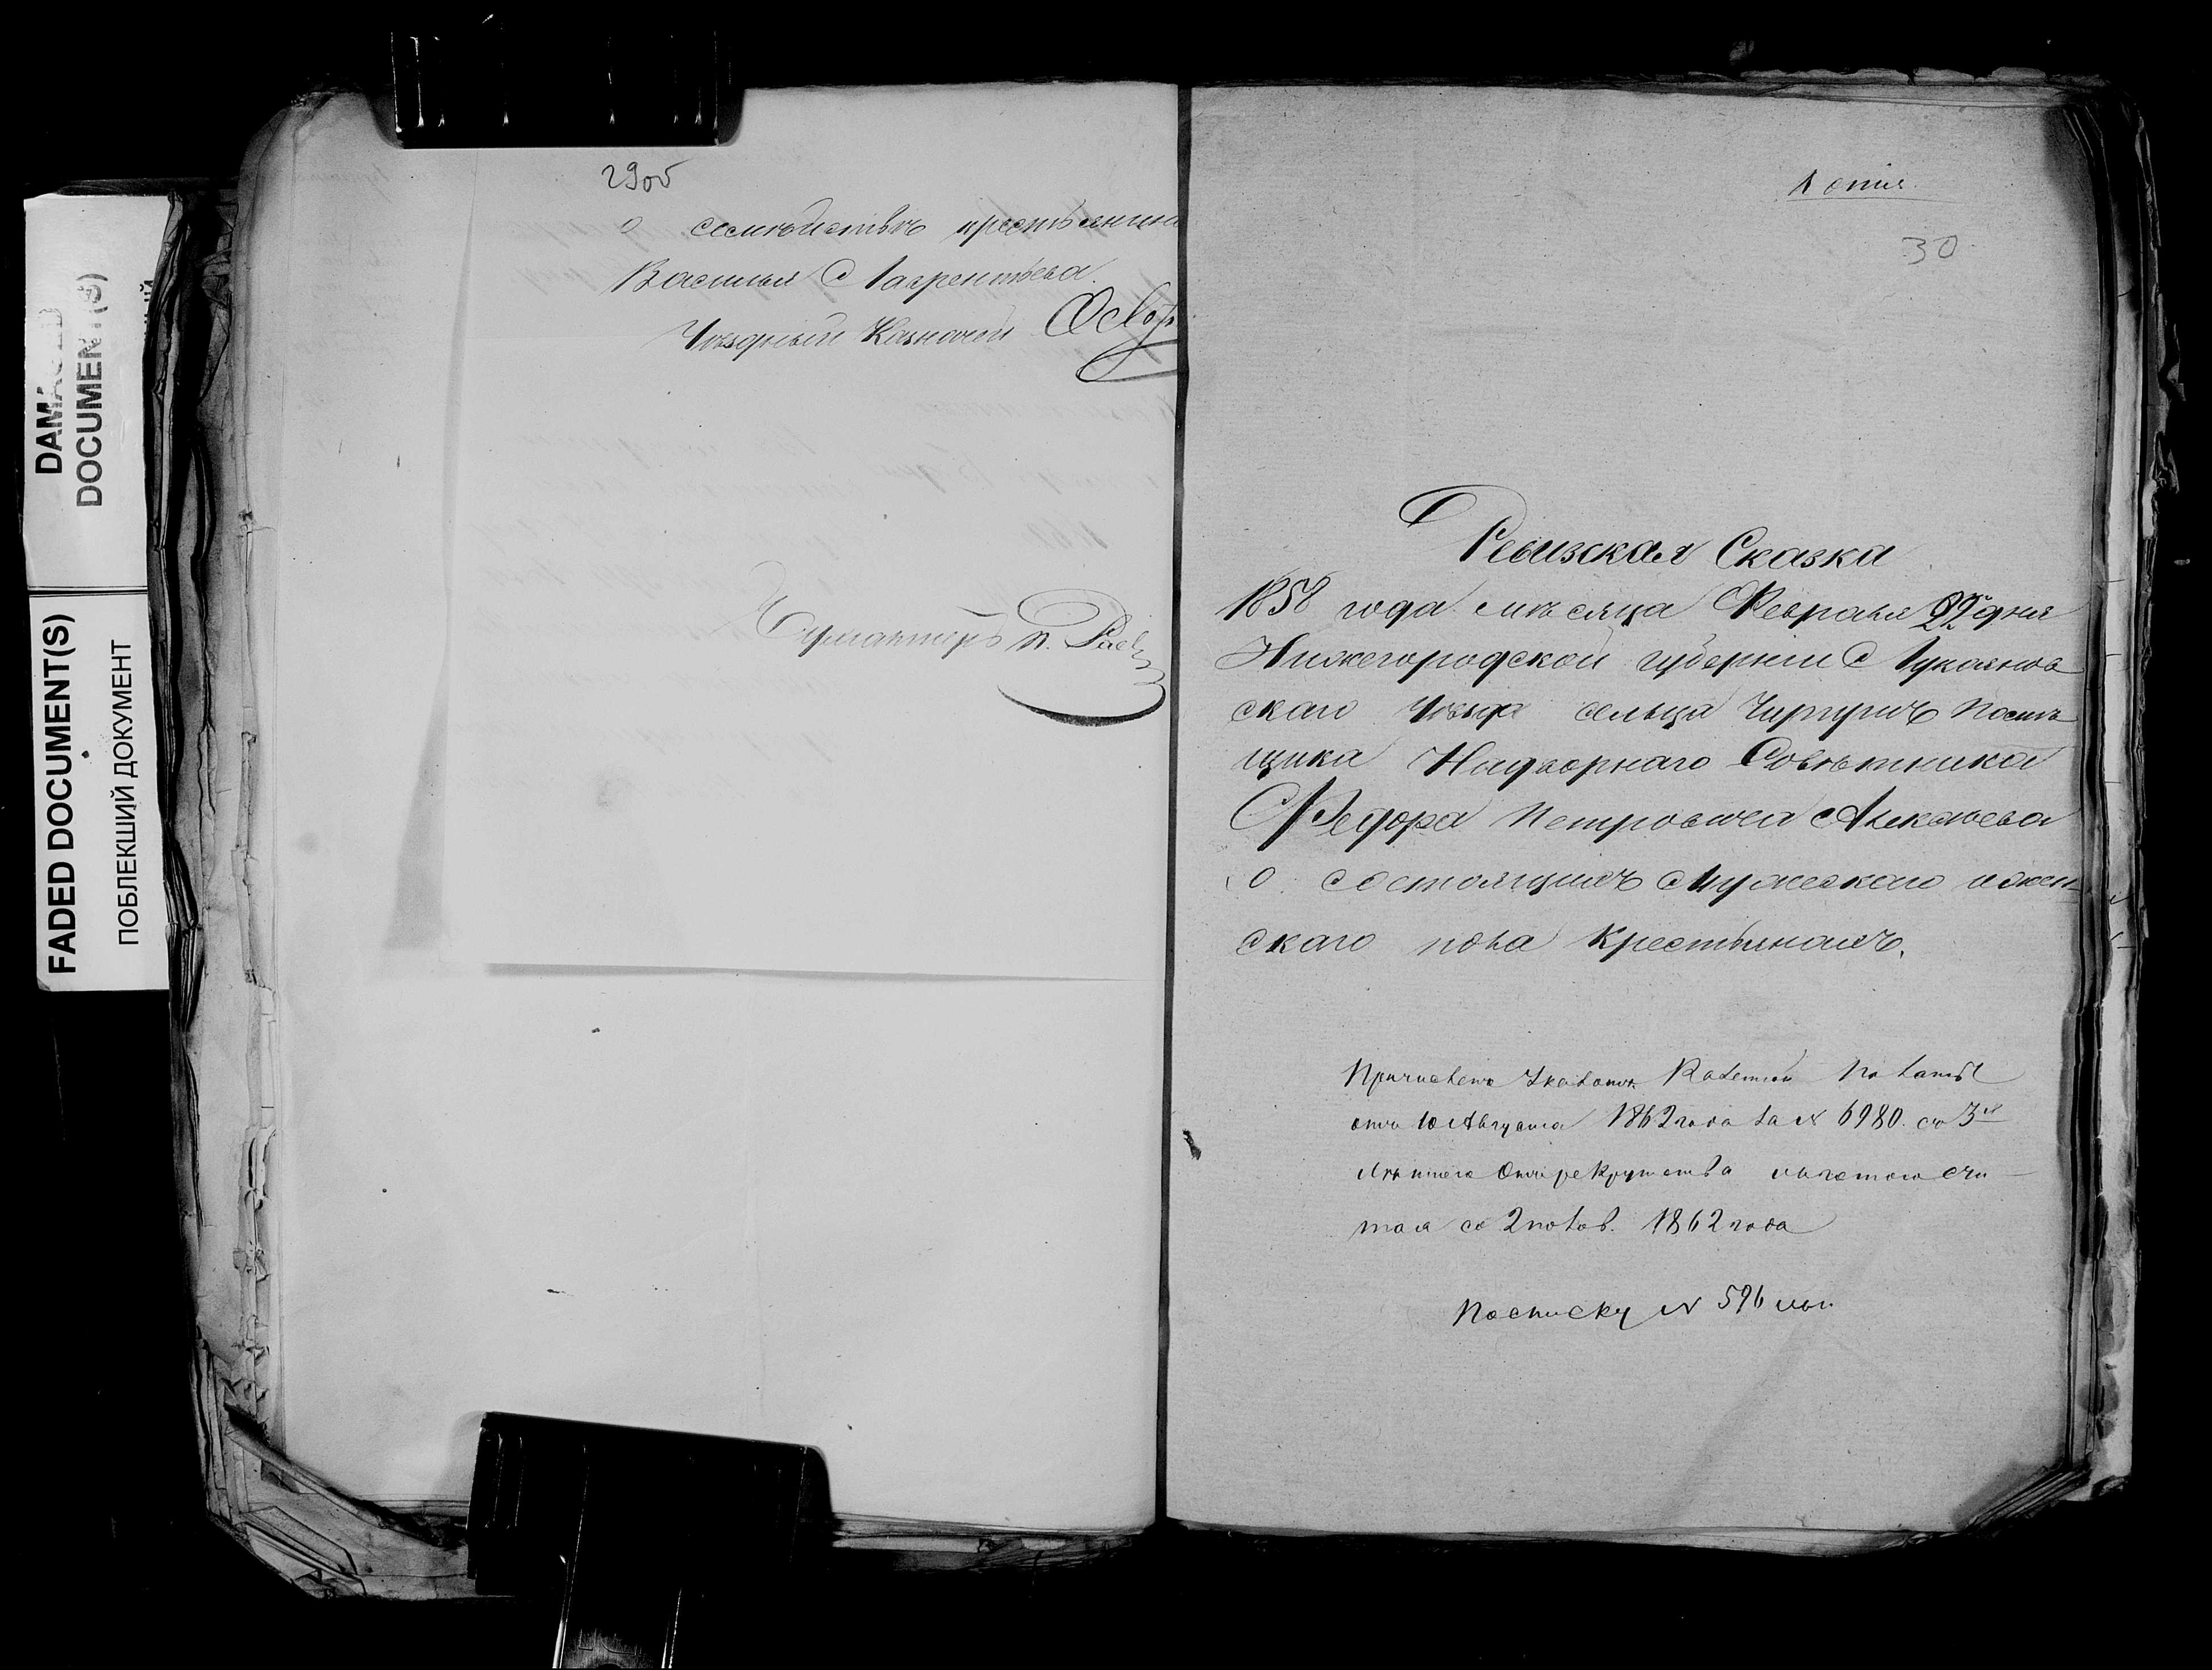 DAMAGED DOCUMENT(S)
FADED DOCUMENT(S)
ПОБЛЕКШИЙ ДОКУМЕНТ
29об
о семѣйствѣ крестьянина
Василья Лаврентьева
Уѣздный Казначей
Бухгалтеръ
Копія
30
Ревизская Сказка
1858 года мѣсяца Февраля 22 дня
Нижегородской губерніи Лукоянов
скаго Уѣзда сельца Чиргуш Помѣ
щика Надворнаго Совѣтника
Федора Петровича
о состоящихъ Мужескаго и жен-
скаго пола Крестьянахъ.
Причислена Указомъ Казенной Палаты
отъ 10 Августа 1862 года за № 6980. съ 3й
Льготою Отъ рекрутства
со 2 полов. 1862 года
По списку № 596